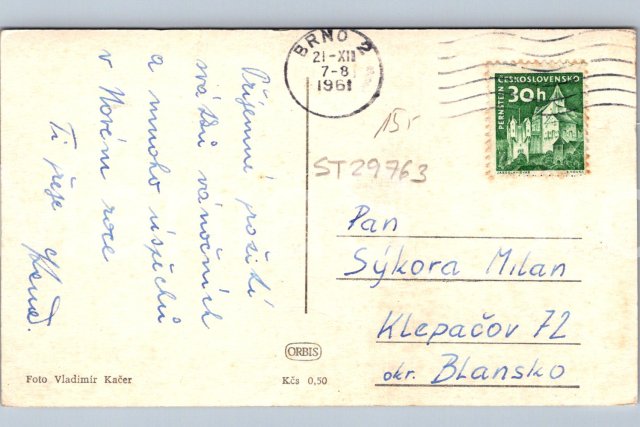 Příjemné prožití
svátků vánočních
a mnoho úspěchů
v Novém roce
Ti přeje
BRNO 2
21-XII
7-8
1961
ČESKOSLOVENSKO
PERNŠTEJN
30h
15,-
ST29763
Pan
Sýkora Milan
Klepačov 72
okr. Blansko
ORBIS
Foto Vladimír Kačer
Kčs 0,50